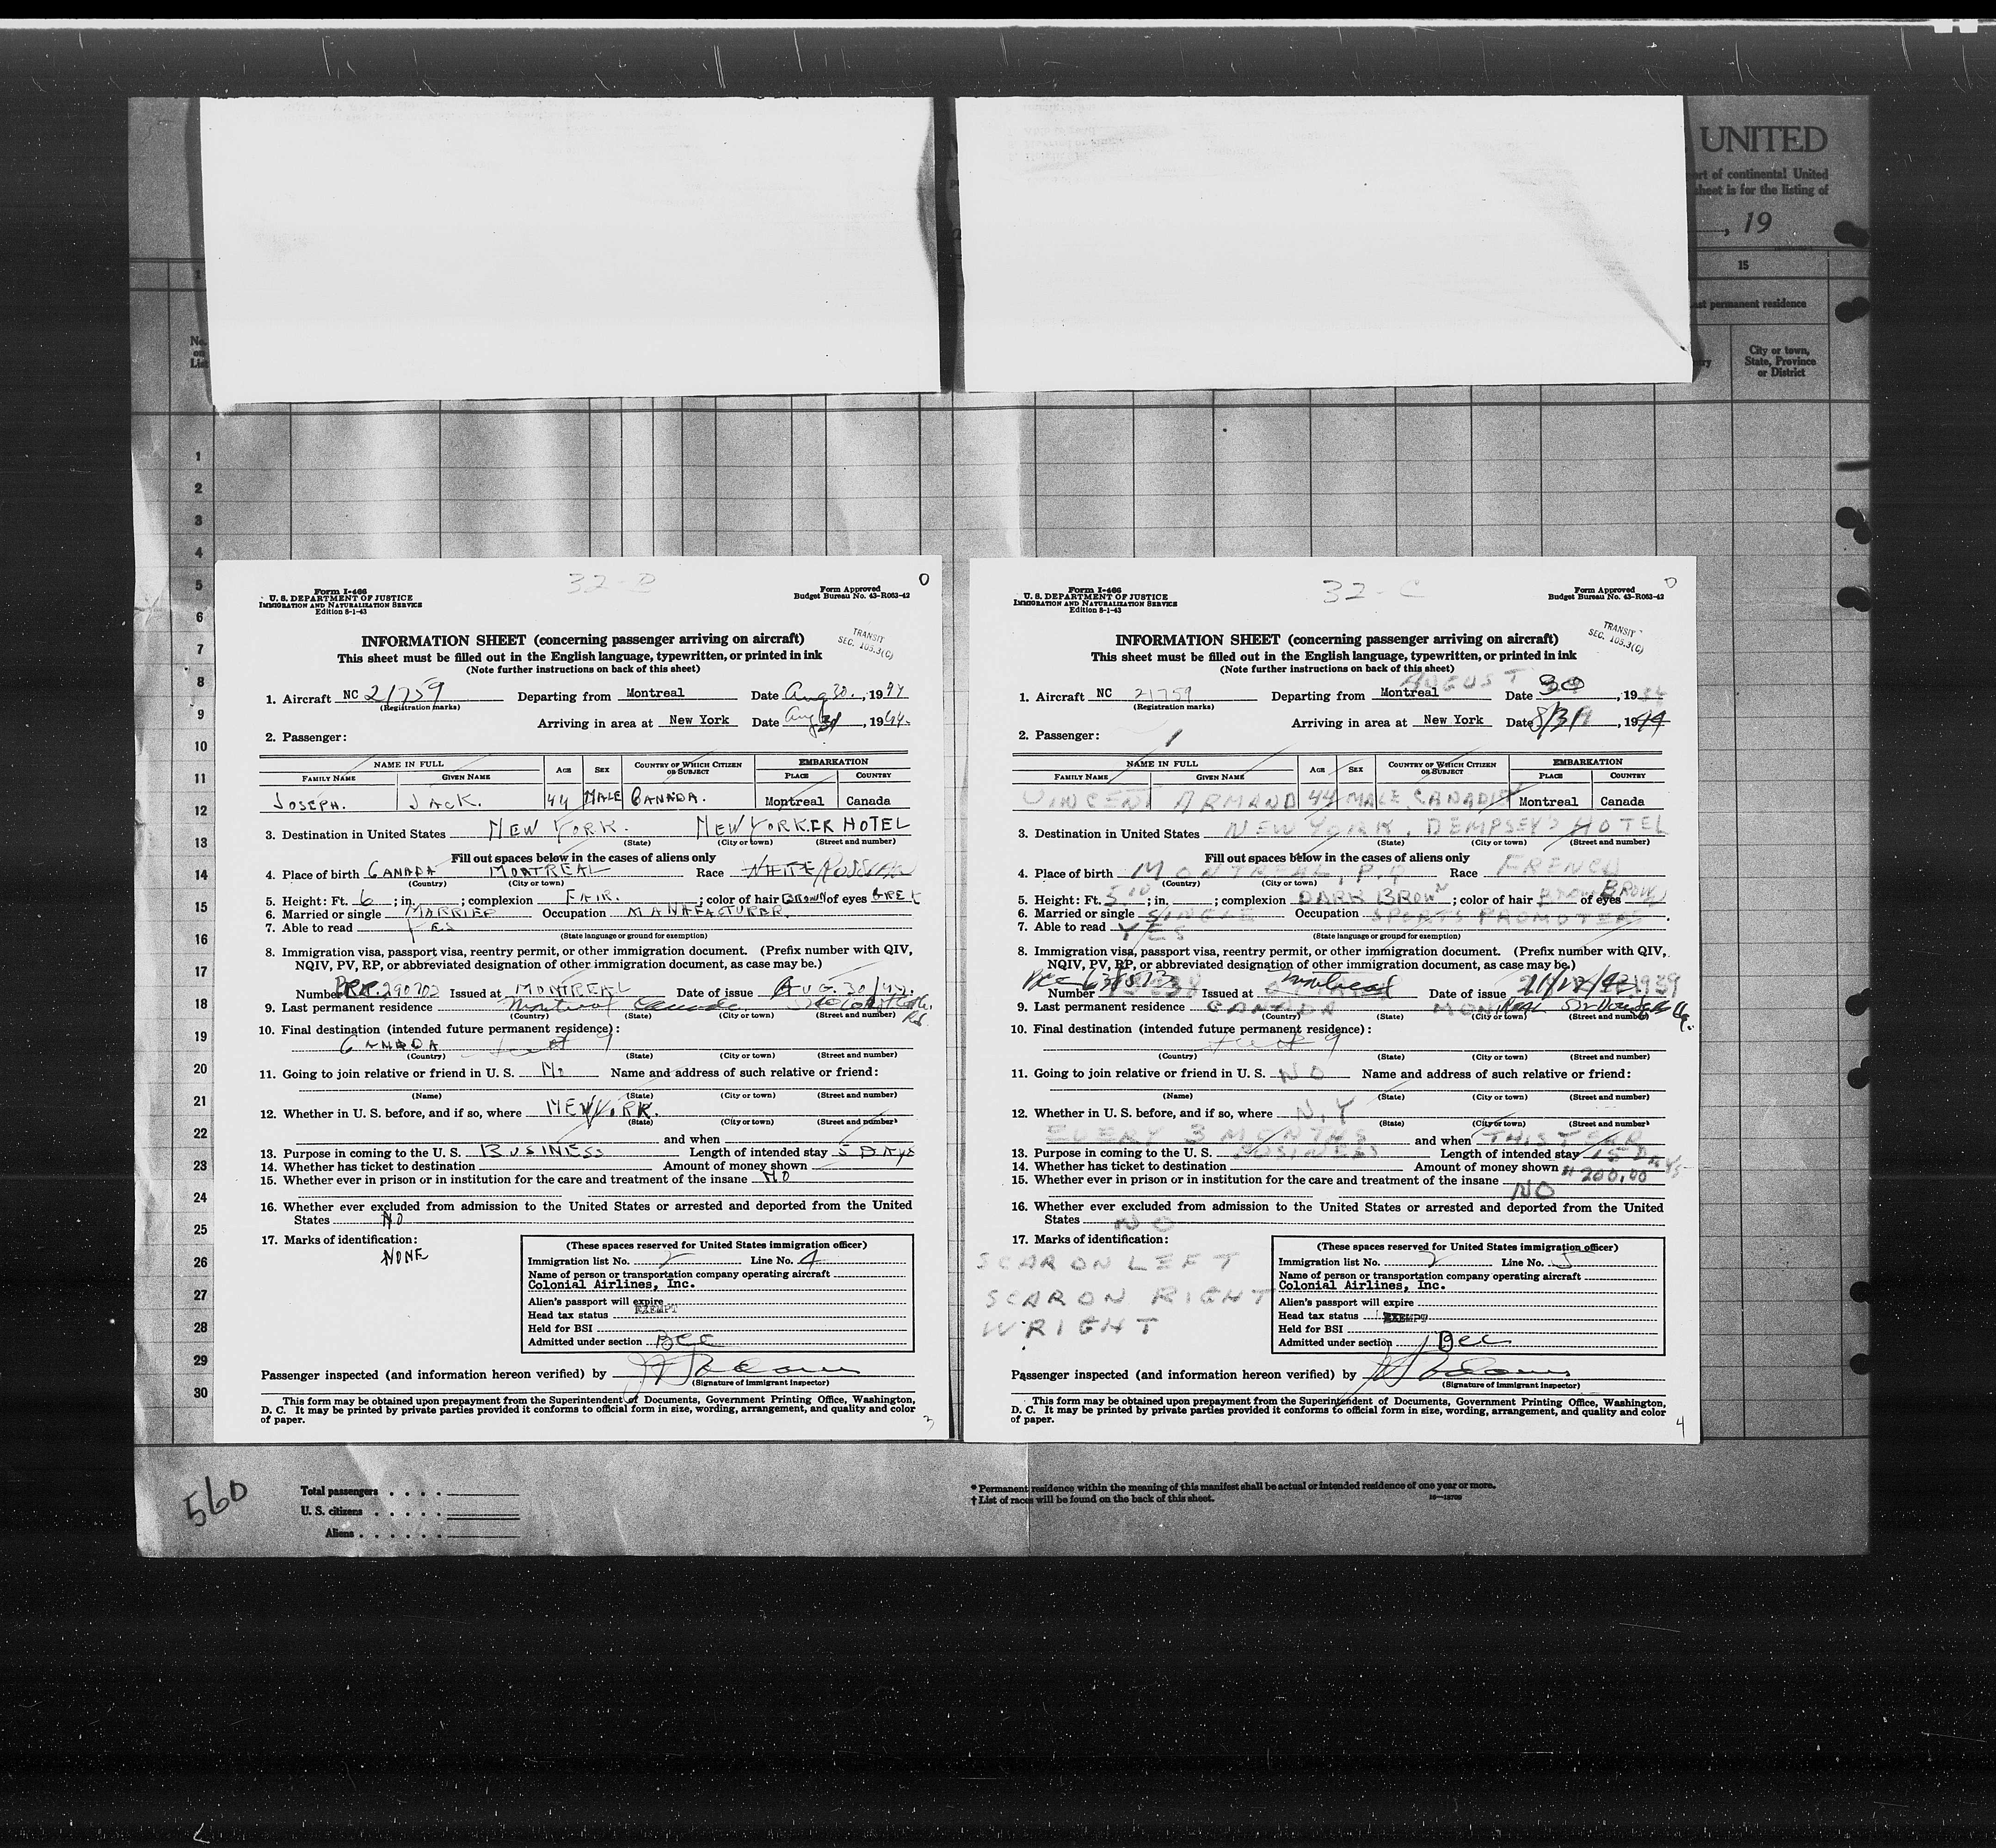 UNITED
ort of continental United
sheet is for the listing of
, 19
15
ast permanent residence
City or town,
State, Province
or District
No.
on
List
1
2
3
4
5
6
7
8
9
10
11
12
13
14
15
16
17
18
19
20
21
22
23
24
25
26
27
28
29
30
32-D
0
Form I-466
U. S. DEPARTMENT OF JUSTICE
IMMIGRATION AND NATURALIZATION SERVICE
Edition 8-1-43
Form Approved
Budget Bureau No. 43-R063-42
TRANSIT
SEC. 103.3(C)
INFORMATION SHEET (concerning passenger arriving on aircraft)
This sheet must be filled out in the English language, typewritten, or printed in ink
(Note further instructions on back of this sheet)
1. Aircraft NC 21759 Departing from Montreal Date Aug 30, 1944
(Registration marks)
Arriving in area at New York Date Aug 31, 1944
2. Passenger:
NAME IN FULL AGE SEX COUNTRY OF WHICH CITIZEN OR SUBJECT EMBARKATION
FAMILY NAME GIVEN NAME PLACE COUNTRY
JOSEPH. JACK. 44 MALE CANADA. Montreal Canada
3. Destination in United States NEW YORK. NEW YORKER HOTEL
(State) (City or town) (Street and number)
Fill out spaces below in the cases of aliens only
4. Place of birth CANADA MONTREAL Race WHITE
(Country) (City or town)
5. Height: Ft. 6; in. ; complexion FAIR. ; color of hair BROWN of eyes GREY
6. Married or single MARRIED Occupation MANAFACTURER.
7. Able to read YES
(State language or ground for exemption)
8. Immigration visa, passport visa, reentry permit, or other immigration document. (Prefix number with QIV,
NQIV, PV, RP, or abbreviated designation of other immigration document, as case may be.)
Number 290702 Issued at MONTREAL Date of issue AUG. 30/44.
9. Last permanent residence Montreal Canada
(Country) (State) (City or town) (Street and number)
10. Final destination (intended future permanent residence):
CANADA
(Country) (State) (City or town) (Street and number)
11. Going to join relative or friend in U. S. No Name and address of such relative or friend:
(Name) (State) (City or town) (Street and number)
12. Whether in U. S. before, and if so, where NEW YORK.
(State) (City or town) (Street and number)
and when
13. Purpose in coming to the U. S. BUSINESS Length of intended stay 5 DAYS
14. Whether has ticket to destination Amount of money shown
15. Whether ever in prison or in institution for the care and treatment of the insane NO
16. Whether ever excluded from admission to the United States or arrested and deported from the United
States NO
17. Marks of identification:
NONE
(These spaces reserved for United States immigration officer)
Immigration list No. 2 Line No. 4
Name of person or transportation company operating aircraft
Colonial Airlines, Inc.
Alien's passport will expire
Head tax status EXEMPT
Held for BSI
Admitted under section Bcc
Passenger inspected (and information hereon verified) by
(Signature of immigrant inspector)
This form may be obtained upon prepayment from the Superintendent of Documents, Government Printing Office, Washington,
D. C. It may be printed by private parties provided it conforms to official form in size, wording, arrangement, and quality and color
of paper.
3
32-C
0
Form I-466
U. S. DEPARTMENT OF JUSTICE
IMMIGRATION AND NATURALIZATION SERVICE
Edition 8-1-43
Form Approved
Budget Bureau No. 43-R063-42
TRANSIT
SEC. 103.3(C)
INFORMATION SHEET (concerning passenger arriving on aircraft)
This sheet must be filled out in the English language, typewritten, or printed in ink
(Note further instructions on back of this sheet)
AUGUST
1. Aircraft NC 21759 Departing from Montreal Date 30, 19
(Registration marks)
Arriving in area at New York Date 8/31, 1944
2. Passenger: 1
NAME IN FULL AGE SEX COUNTRY OF WHICH CITIZEN OR SUBJECT EMBARKATION
FAMILY NAME GIVEN NAME PLACE COUNTRY
VINCENT ARMAND 44 MALE CANADIEN Montreal Canada
3. Destination in United States NEW YORK, DEMPSEY'S HOTEL
(State) (City or town) (Street and number)
Fill out spaces below in the cases of aliens only
4. Place of birth MONTREAL, P.Q Race FRENCH
(Country) (City or town)
5. Height: Ft. 5.10; in. ; complexion DARK BROWN; color of hair BROWN of eyes BROWN
6. Married or single SINGLE Occupation SPORTS PROMOTER
7. Able to read YES
(State language or ground for exemption)
8. Immigration visa, passport visa, reentry permit, or other immigration document. (Prefix number with QIV,
NQIV, PV, RP, or abbreviated designation of other immigration document, as case may be.)
Number Issued at Montreal Date of issue 1939
9. Last permanent residence CANADA
(Country) (State) (City or town) (Street and number)
10. Final destination (intended future permanent residence):
(Country) (State) (City or town) (Street and number)
11. Going to join relative or friend in U. S. NO Name and address of such relative or friend:
(Name) (State) (City or town) (Street and number)
12. Whether in U. S. before, and if so, where N.Y
(State) (City or town) (Street and number)
EVERY 3 MONTHS and when THIS YEAR
13. Purpose in coming to the U. S. BUSINESS Length of intended stay 15 DAYS
14. Whether has ticket to destination Amount of money shown $200.00
15. Whether ever in prison or in institution for the care and treatment of the insane NO
16. Whether ever excluded from admission to the United States or arrested and deported from the United
States NO
17. Marks of identification:
SCAR ON LEFT
SCAR ON RIGHT
WRIGHT
(These spaces reserved for United States immigration officer)
Immigration list No. 2 Line No. 5
Name of person or transportation company operating aircraft
Colonial Airlines, Inc.
Alien's passport will expire
Head tax status EXEMPT
Held for BSI
Admitted under section Bcc
Passenger inspected (and information hereon verified) by
(Signature of immigrant inspector)
This form may be obtained upon prepayment from the Superintendent of Documents, Government Printing Office, Washington,
D. C. It may be printed by private parties provided it conforms to official form in size, wording, arrangement, and quality and color
of paper.
4
560
Total passengers . . . .
U. S. citizens . . . . .
Aliens . . . . . .
* Permanent residence within the meaning of this manifest shall be actual or intended residence of one year or more.
† List of races will be found on the back of this sheet.